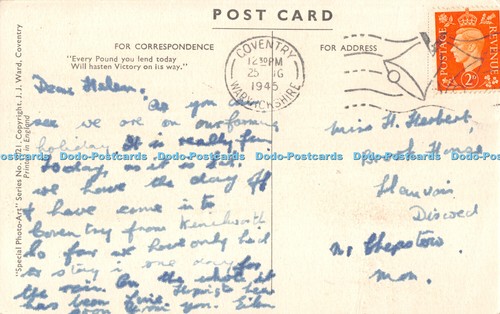 POST CARD
FOR CORRESPONDENCE
FOR ADDRESS
"Every Pound you lend today
Will hasten Victory on its way."
COVENTRY
12 PM
25
1945
WARWICKSHIRE
POSTAGE
REVENUE
2D
"Special Photo-Art" Series No. Copyright. J. J. Ward, Coventry
Printed in England
Dear Helen,
As you can
see we are on our farming
holiday. It is really fun.
Today, as it is wet.
we have the day off
& have come in to
Coventry from Kenilworth
So far we have only had
to stay in one day for
the rain. On the whole it
has been fine. Hope to hear
soon from you. Eileen
Miss H. Herbert,
House
Llanvair
Discoed
Nr Chepstow
Mon.
Dodo-Postcards Dodo-Postcards Dodo-Postcards Dodo-Postcards Dodo-Postcards Dodo-Postcards